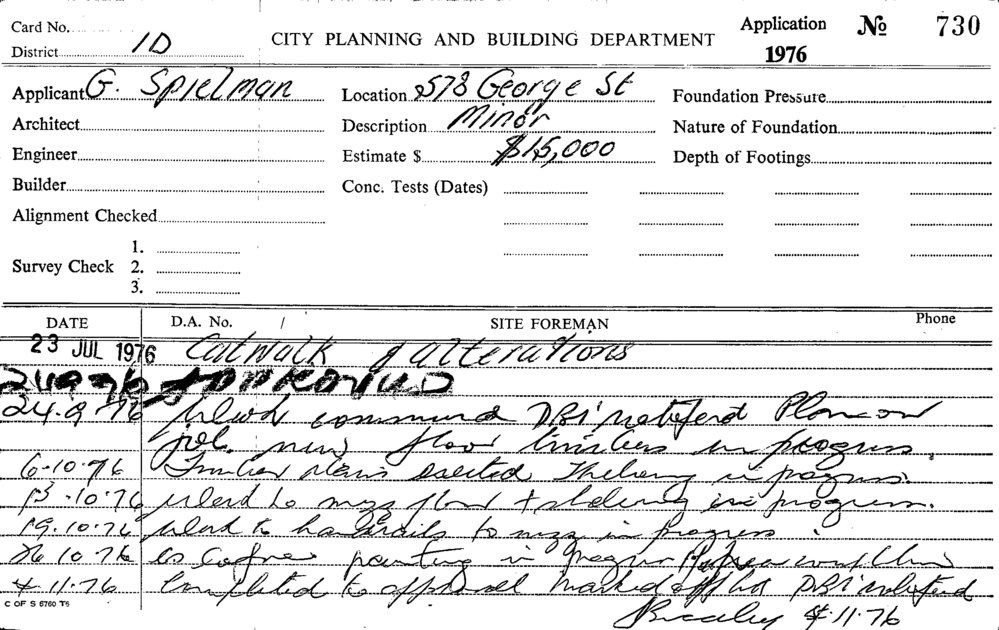 Card No.
District 1D
CITY PLANNING AND BUILDING DEPARTMENT
Application № 730
1976
Applicant G. Spielman
Location 578 George St
Foundation Pressure
Architect
Description Minor
Nature of Foundation
Engineer
Estimate $ $15,000
Depth of Footings
Builder
Conc. Tests (Dates)
Alignment Checked
1.
Survey Check 2.
3.
DATE D.A. No. / SITE FOREMAN Phone
23 JUL 1976 Catwalk & alterations
24 9 76 APPROVED
24.9.76 Work commenced DBI notified Plan on
job. new floor timbers in progress.
6-10-76 Timber stairs erected in progress.
13.10.76 Work to mezz floor + shelving in progress.
19.10.76 Work to handrails to mezz in progress.
26 10 76 as before painting in progress
4.11.76 Completed to approval marked off list DBI notified
4.11.76
C OF S 6760 T5